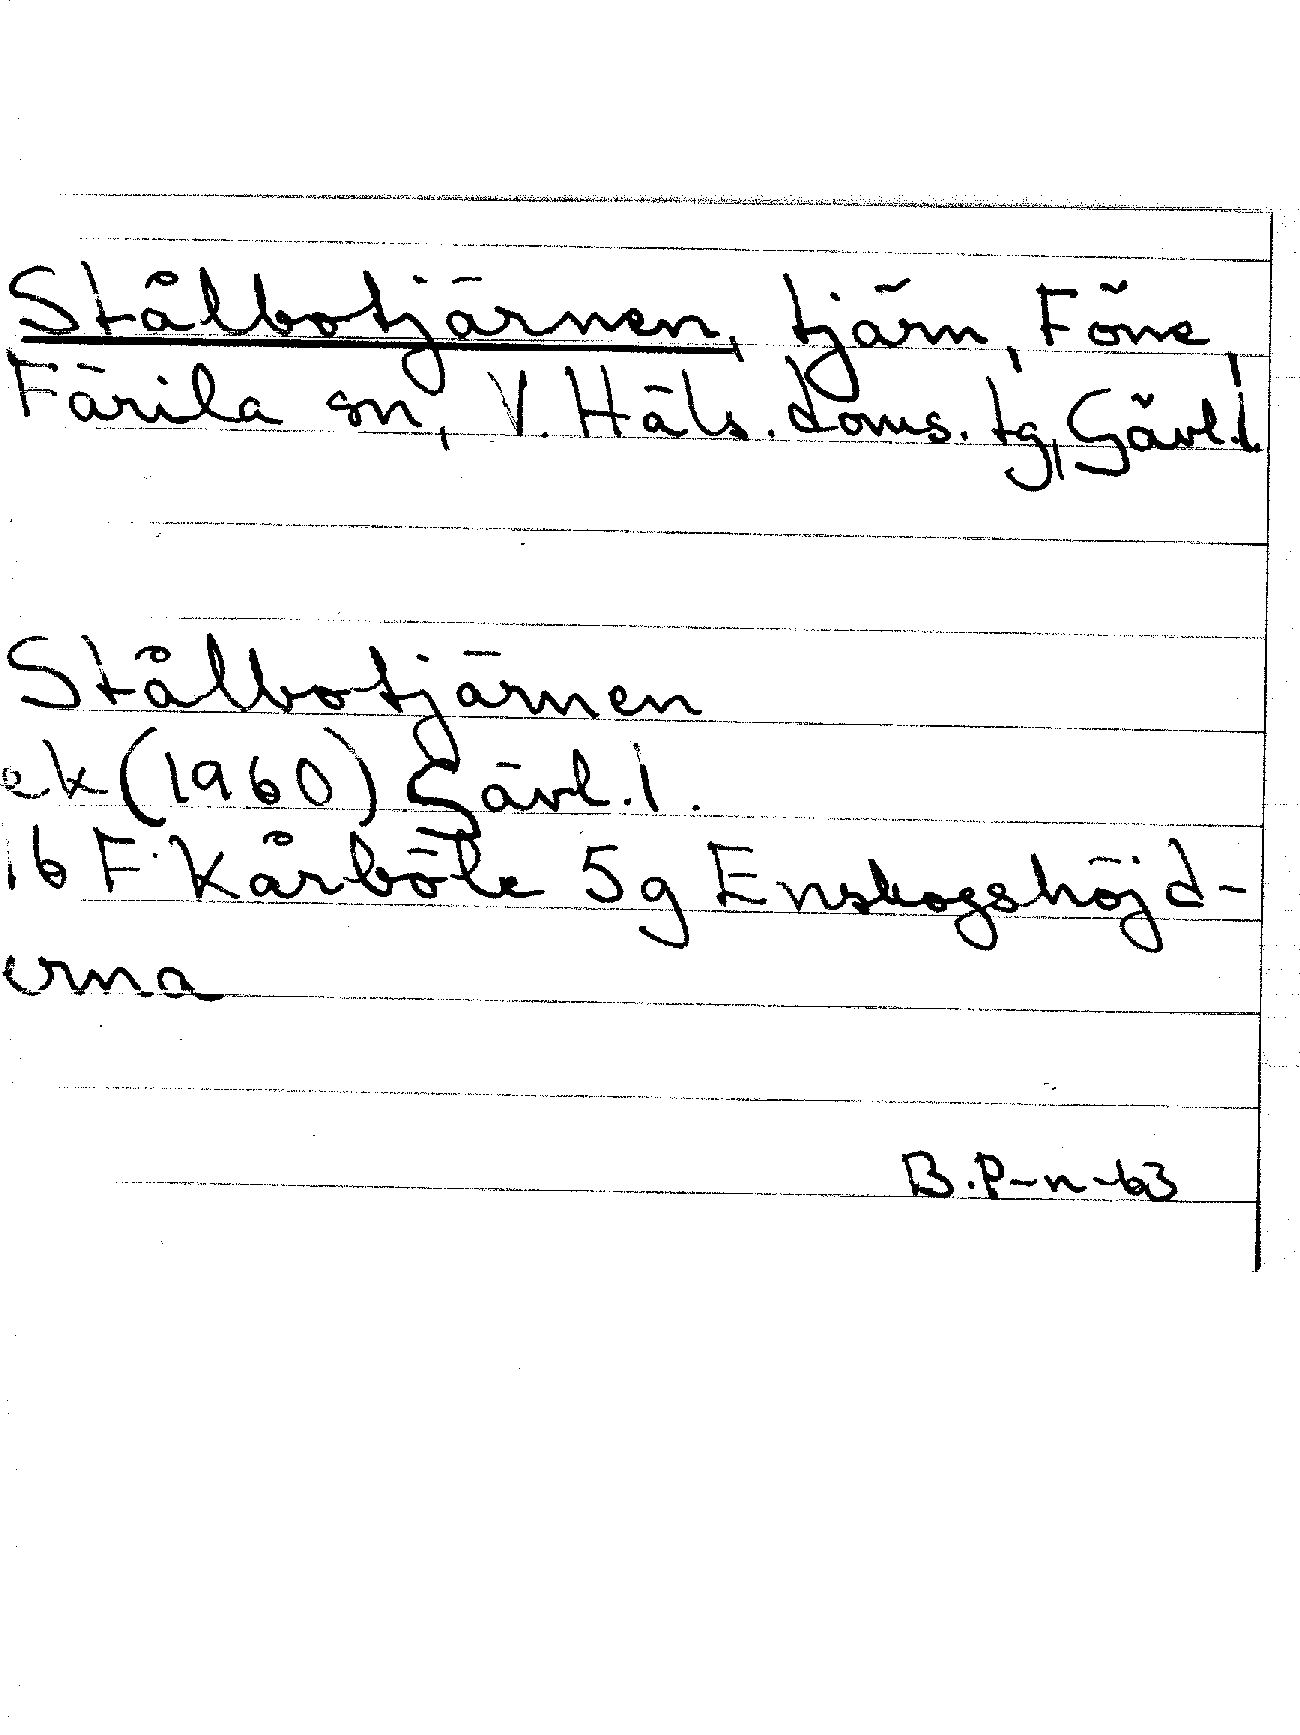 Stålbotjärnen, tjärn, Föne,
Färila sn, V. Häls. doms. tg, Gävl.l.
Stålbotjärnen
ek (1960) Gävl.l.
16 F Kårböle 5g Enskogshöjd-
erna
B.P-n-63